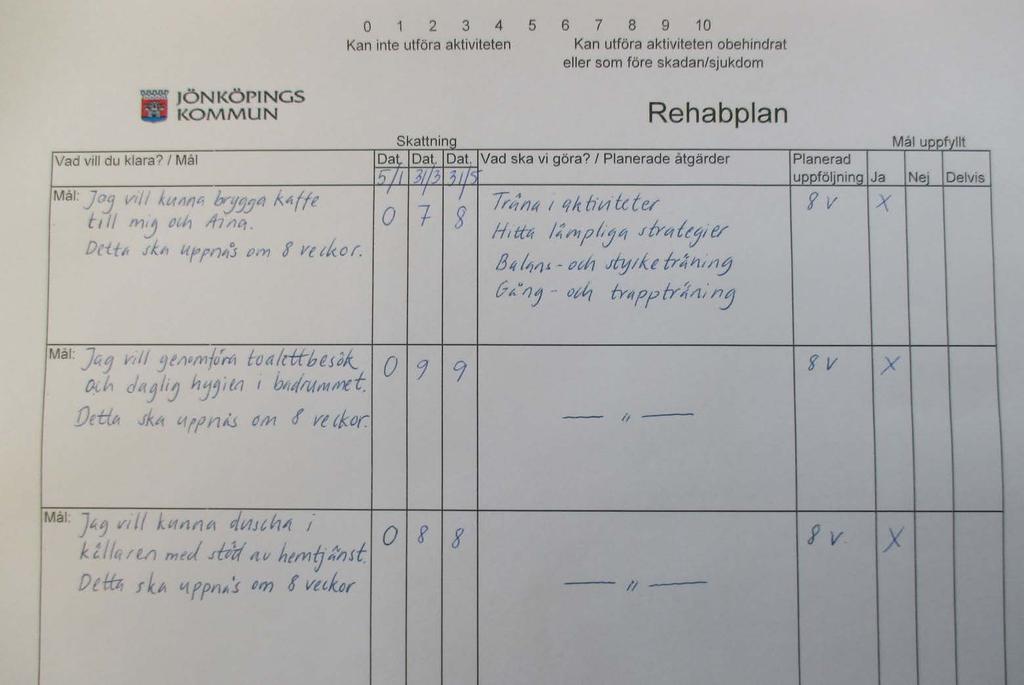 0 1 2 3 4 5 6 7 8 9 10
Kan inte utföra aktiviteten Kan utföra aktiviteten obehindrat
eller som före skadan/sjukdom
JÖNKÖPINGS
KOMMUN
Rehabplan
Skattning Mål uppfyllt
Vad vill du klara? / Mål Dat. Dat. Dat. Vad ska vi göra? / Planerade åtgärder Planerad
5/1 31/3 31/5 uppföljning Ja Nej Delvis
Mål: Jag vill kunna brygga kaffe 0 7 8 Träna i aktiviteter 8 v X
till mig och Aina. Hitta lämpliga strategier
Detta ska uppnås om 8 veckor. Balans- och styrketräning
Gång- och trappträning
Mål: Jag vill genomföra toalettbesök 0 9 9 8 v X
och daglig hygien i badrummet.
Detta ska uppnås om 8 veckor. — " —
Mål: Jag vill kunna duscha i 0 8 8 8 v. X
källaren med stöd av hemtjänst.
Detta ska uppnås om 8 veckor — " —